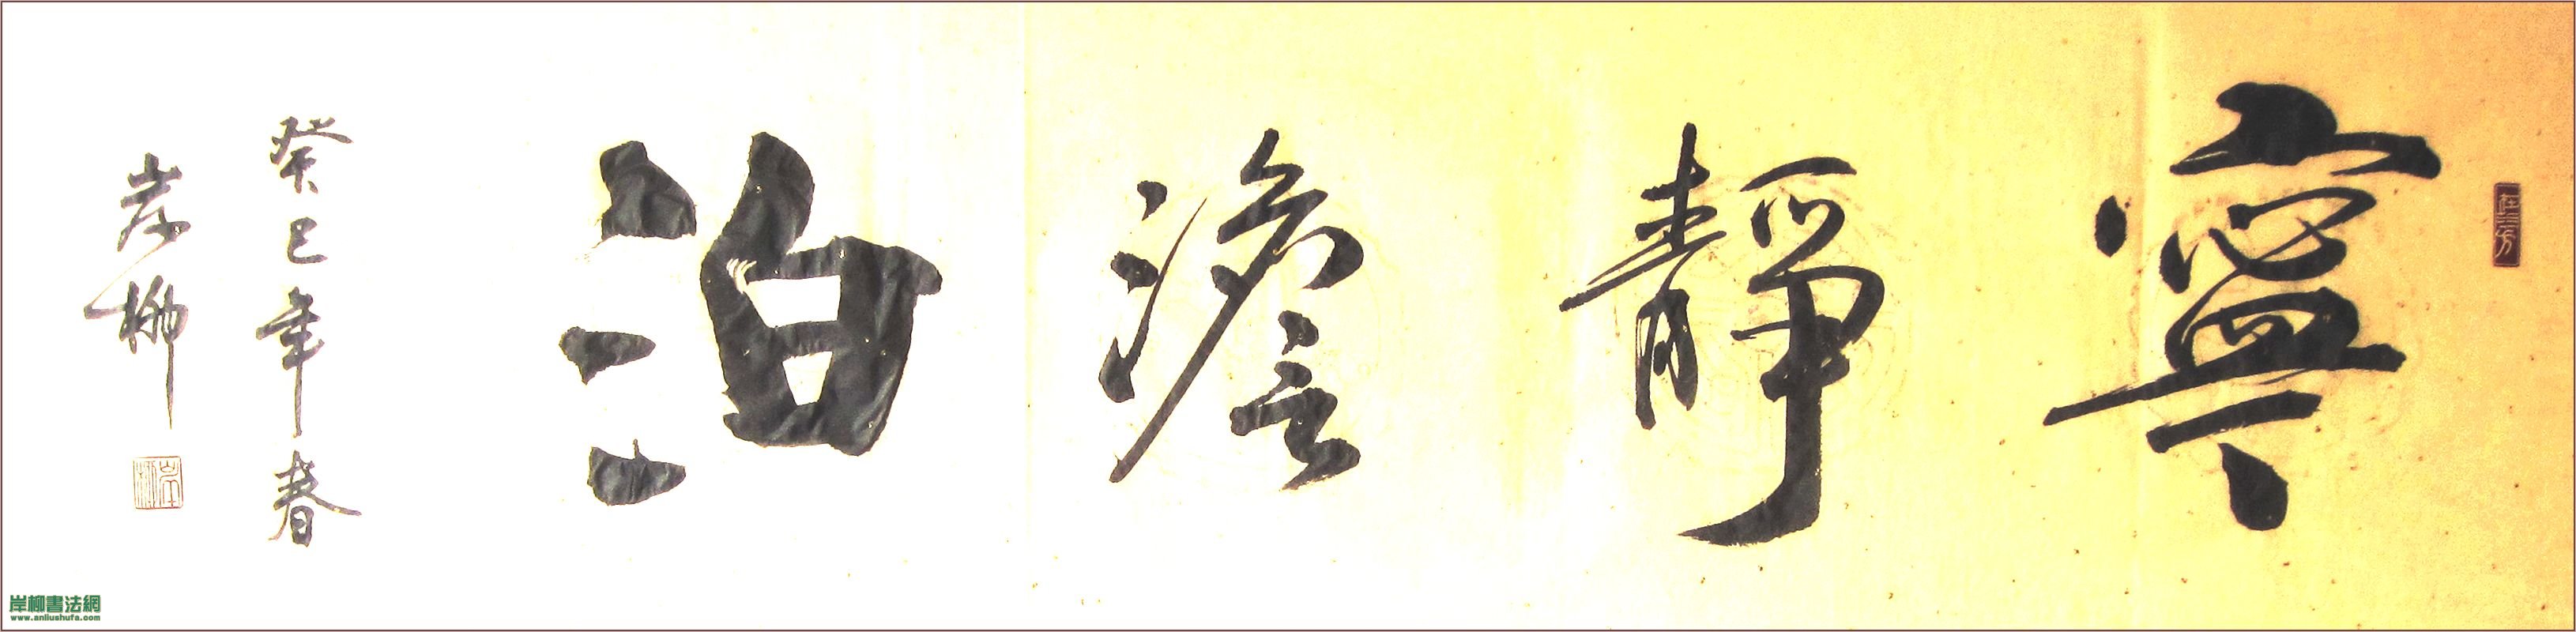 寧靜澹泊
癸巳年春
岸柳
岸柳
岸柳書法網
www.anliushufa.com